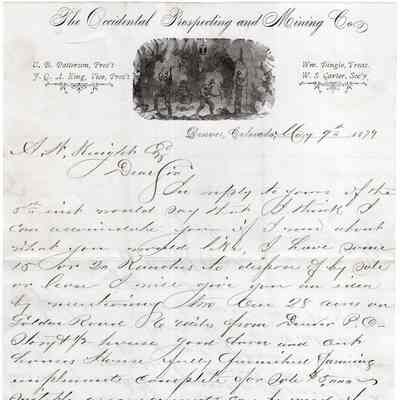 The Occidental Prospecting and Mining Co.
U. B. Patterson, Pres't
J. C. A. King, Vice, Pres't
Wm. Dingle, Treas.
W. S. Carter, Sec'y.
Denver, Colorado, May 9th 1879
A. N. Knight Esq
Dear Sir
In reply to yours of the
5th inst would say that I think I
can accomodate you if I run about
what you would like, I have some
15 or 20 Ranches to dispose of by sale
or lease I will give you an idea
by mentioning No One 28 acres on
Golden Road 6 miles from Denver P. O.
house good barn and out
houses House fully furnished farming
implements complete for Sale